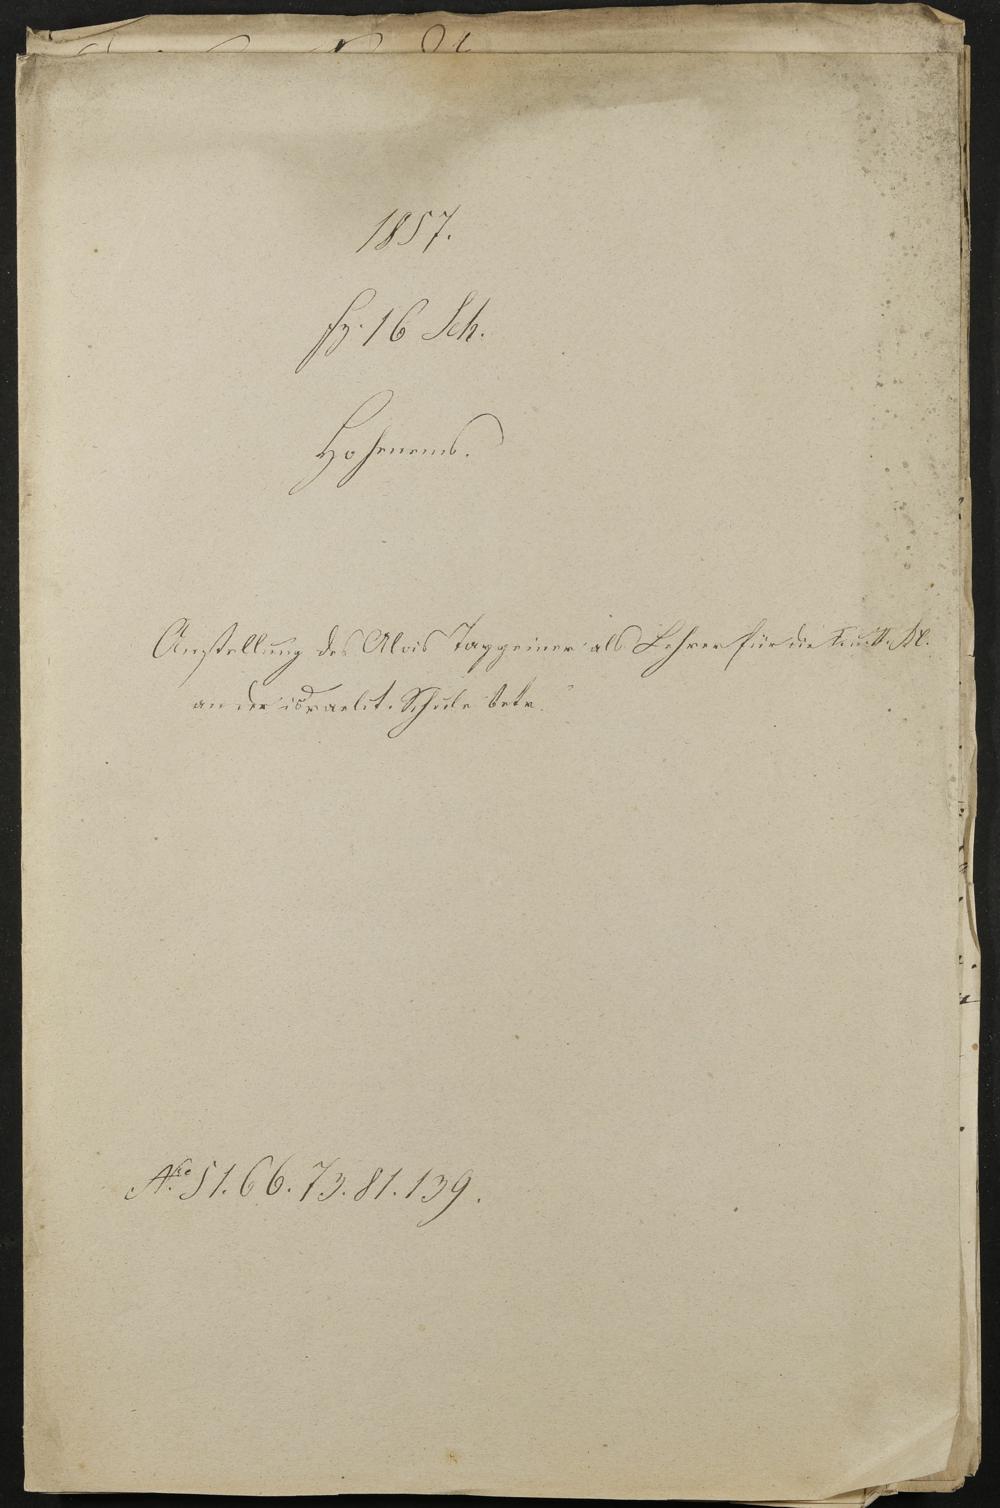 1857.
Fz. 16 Sch.
Hohenems.
Anstellung des Alois Tappeiner als Lehrer für die I. u. II. Kl.
an der israelit. Schule betr.
No 51. 66. 73. 81. 139.